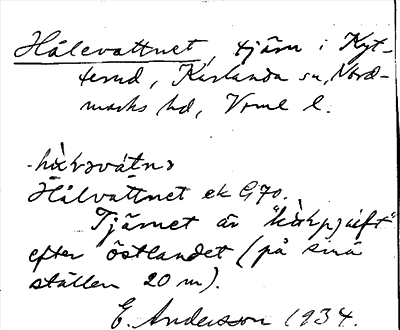 Hålevattnet, tjärn i Kyt-
terud, Karlanda sn, Nord-
marks hd, Vrml l.
Hålvattnet ek G70.
Tjärnet är
efter östlandet (på sina
ställen 20 m).
E. Andersson 1934.